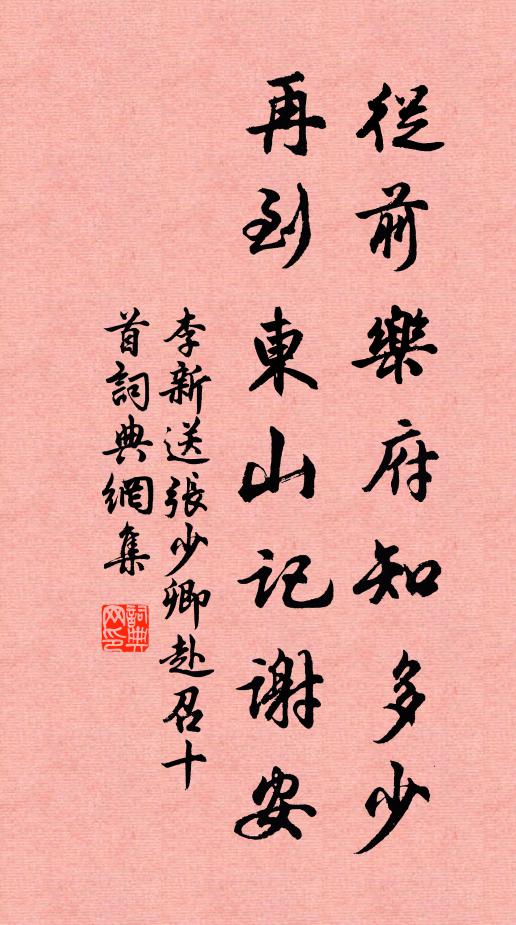 從前樂府知多少
再到東山記謝安
李新送張少卿赴召十
首詞典網集
詞典網印